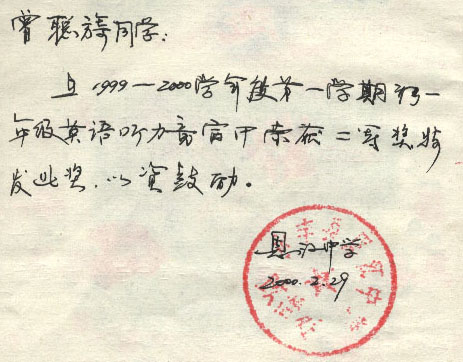 曾聪旖同学:
在1999—2000学年度第一学期初一
年级英语听力竞赛中荣获二等奖特
发此奖,以资鼓励。
中学
2000.2.29